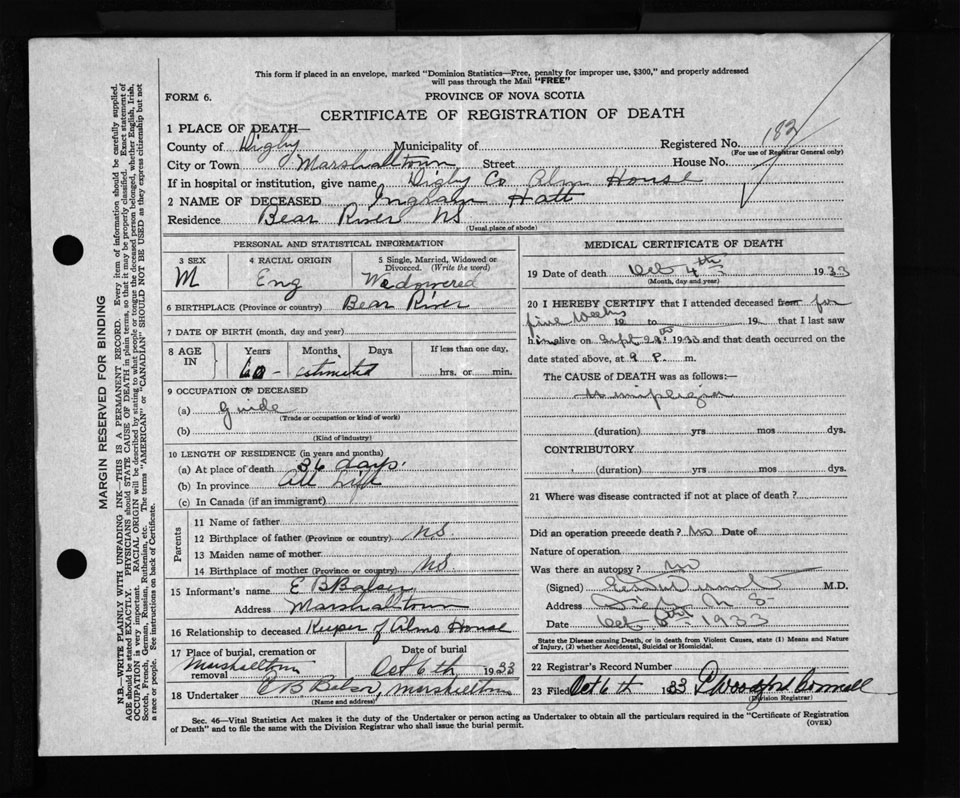 This form if placed in an envelope, marked "Dominion Statistics—Free, penalty for improper use, $300," and properly addressed
will pass through the Mail "FREE"
FORM 6.
PROVINCE OF NOVA SCOTIA
CERTIFICATE OF REGISTRATION OF DEATH
1 PLACE OF DEATH—
County of Digby Municipality of Registered No. 182
(For use of Registrar General only)
City or Town Marshalltown Street House No.
If in hospital or institution, give name Digby Co Alms House
2 NAME OF DECEASED Ingram Hatt
Residence Bear River NS
(Usual place of abode)
PERSONAL AND STATISTICAL INFORMATION
3 SEX 4 RACIAL ORIGIN 5 Single, Married, Widowed or
Divorced. (Write the word)
M Eng Widowered
6 BIRTHPLACE (Province or country) Bear River
7 DATE OF BIRTH (month, day and year)
8 AGE IN Years Months Days If less than one day,
60 - estimated hrs. or min.
9 OCCUPATION OF DECEASED
(a) guide
(Trade or occupation or kind of work)
(b)
(Kind of industry)
10 LENGTH OF RESIDENCE (in years and months)
(a) At place of death 36 days.
(b) In province all Life
(c) In Canada (if an immigrant)
Parents
11 Name of father
12 Birthplace of father (Province or country) NS.
13 Maiden name of mother
14 Birthplace of mother (Province or country) NS.
15 Informant's name E B
Address Marshalltown
16 Relationship to deceased Keeper of Alms House
17 Place of burial, cremation or removal Marshalltown
Date of burial Oct 6th 1933
18 Undertaker E B Marshalltown
(Name and address)
MEDICAL CERTIFICATE OF DEATH
19 Date of death Oct 4th 1933
(Month, day and year)
20 I HEREBY CERTIFY that I attended deceased from for
five weeks 19 to 19 that I last saw
him alive on Sept 29th 1933 and that death occurred on the
date stated above, at 9 P. m.
The CAUSE of DEATH was as follows:—
Hemiplegia
(duration) yrs mos dys.
CONTRIBUTORY
(duration) yrs mos dys.
21 Where was disease contracted if not at place of death?
Did an operation precede death? no Date of
Nature of operation
Was there an autopsy? no
(Signed) M.D.
Address Digby N S
Date Oct 1933
State the Disease causing Death, or in death from Violent Causes, state (1) Means and Nature
of Injury, (2) whether Accidental, Suicidal or Homicidal.
22 Registrar's Record Number
23 Filed Oct 6th 1933
(Division Registrar)
Sec. 46—Vital Statistics Act makes it the duty of the Undertaker or person acting as Undertaker to obtain all the particulars required in the "Certificate of Registration
of Death" and to file the same with the Division Registrar who shall issue the burial permit.
(OVER)
MARGIN RESERVED FOR BINDING
N.B.—WRITE PLAINLY WITH UNFADING INK—THIS IS A PERMANENT RECORD. Every item of information should be carefully supplied.
AGE should be stated EXACTLY. PHYSICIANS should STATE CAUSE OF DEATH in plain terms, so that it may be properly classified. Exact statement of
OCCUPATION is very important. RACIAL ORIGIN will be described by stating to what people or tongue the deceased person belonged, whether English, Irish,
Scotch, French, German, Russian, Ruthenian, etc. The terms "AMERICAN" or "CANADIAN" SHOULD NOT BE USED as they express citizenship but not
a race or people. See instructions on back of Certificate.